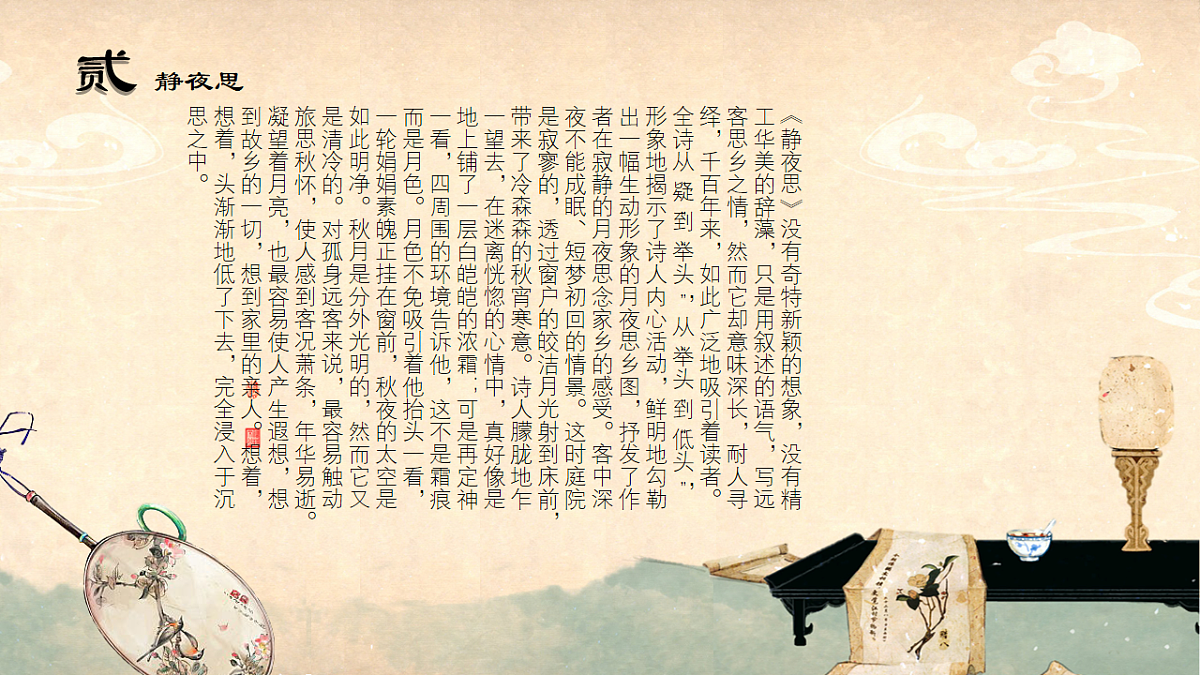 贰 静夜思
《静夜思》没有奇特新颖的想象，没有精
工华美的辞藻，只是用叙述的语气，写远
客思乡之情，然而它却意味深长，耐人寻
绎，千百年来，如此广泛地吸引着读者。
全诗从 疑 到 举头 "，从 举头 到 低头 "，
形象地揭示了诗人内心活动，鲜明地勾勒
出一幅生动形象的月夜思乡图，抒发了作
者在寂静的月夜思念家乡的感受。客中深
夜不能成眠、短梦初回的情景。这时庭院
是寂寥的，透过窗户的皎洁月光射到床前，
带来了冷森森的秋宵寒意。诗人朦胧地乍
一望去，在迷离恍惚的心情中，真好像是
地上铺了一层白皑皑的浓霜；可是再定神
一看，四周围的环境告诉他，这不是霜痕
而是月色。月色不免吸引着他抬头一看，
一轮娟娟素魄正挂在窗前，秋夜的太空是
如此明净。秋月是分外光明的，然而它又
是清冷的。对孤身远客来说，最容易触动
旅思秋怀，使人感到客况萧条，年华易逝。
凝望着月亮，也最容易使人产生遐想，想
到故乡的一切，想到家里的亲人。想着，
想着，头渐渐地低了下去，完全浸入于沉
思之中。